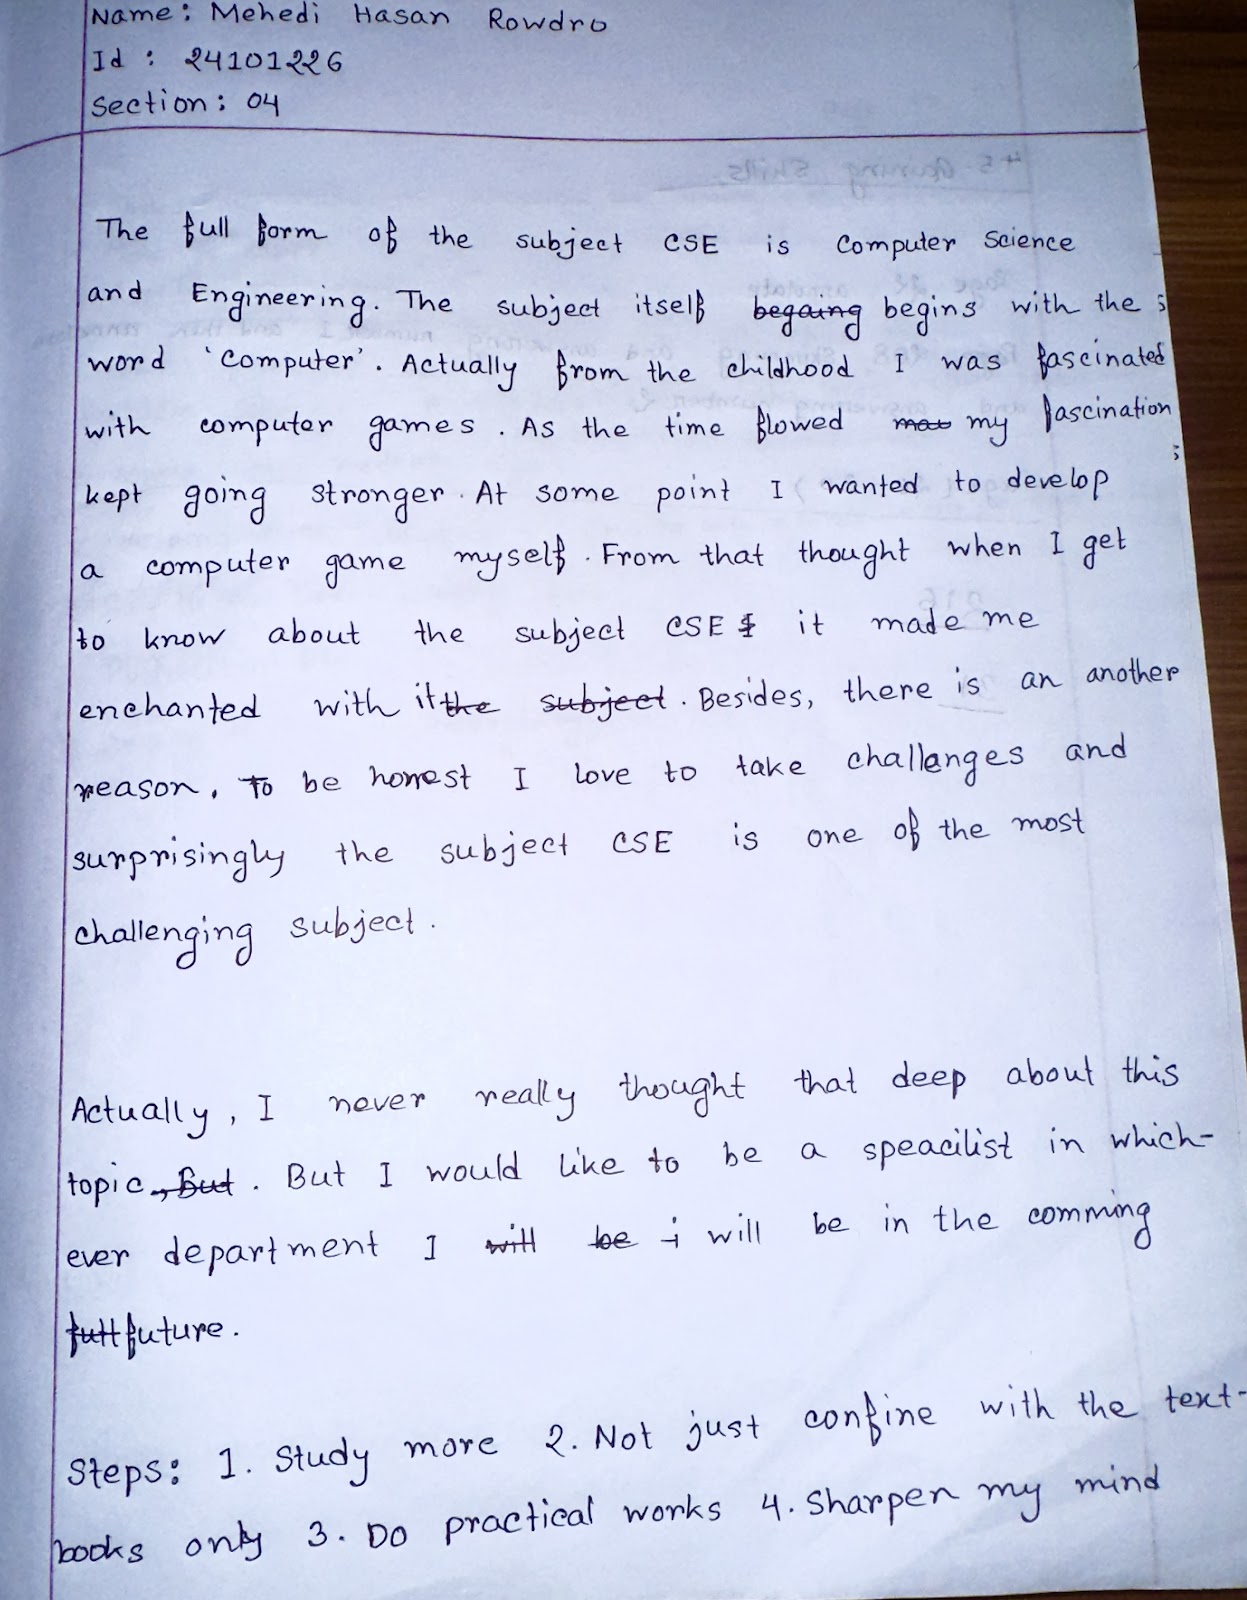 Name: Mehedi Hasan Rowdro
Id : 24101226
Section: 04
The full form of the subject CSE is Computer Science
and Engineering. The subject itself begaing begins with the
word 'Computer'. Actually from the childhood I was fascinated
with computer games. As the time flowed my fascination
kept going stronger. At some point I wanted to develop
a computer game myself. From that thought when I get
to know about the subject CSE I it made me
enchanted with it the subject. Besides, there is an another
reason. To be honest I love to take challenges and
surprisingly the subject CSE is one of the most
challenging subject.
Actually, I never really thought that deep about this
topic, But. But I would like to be a speacilist in which-
ever department I will be i will be in the comming
futt future.
Steps: 1. Study more 2. Not just confine with the text-
books only 3. Do practical works 4. Sharpen my mind